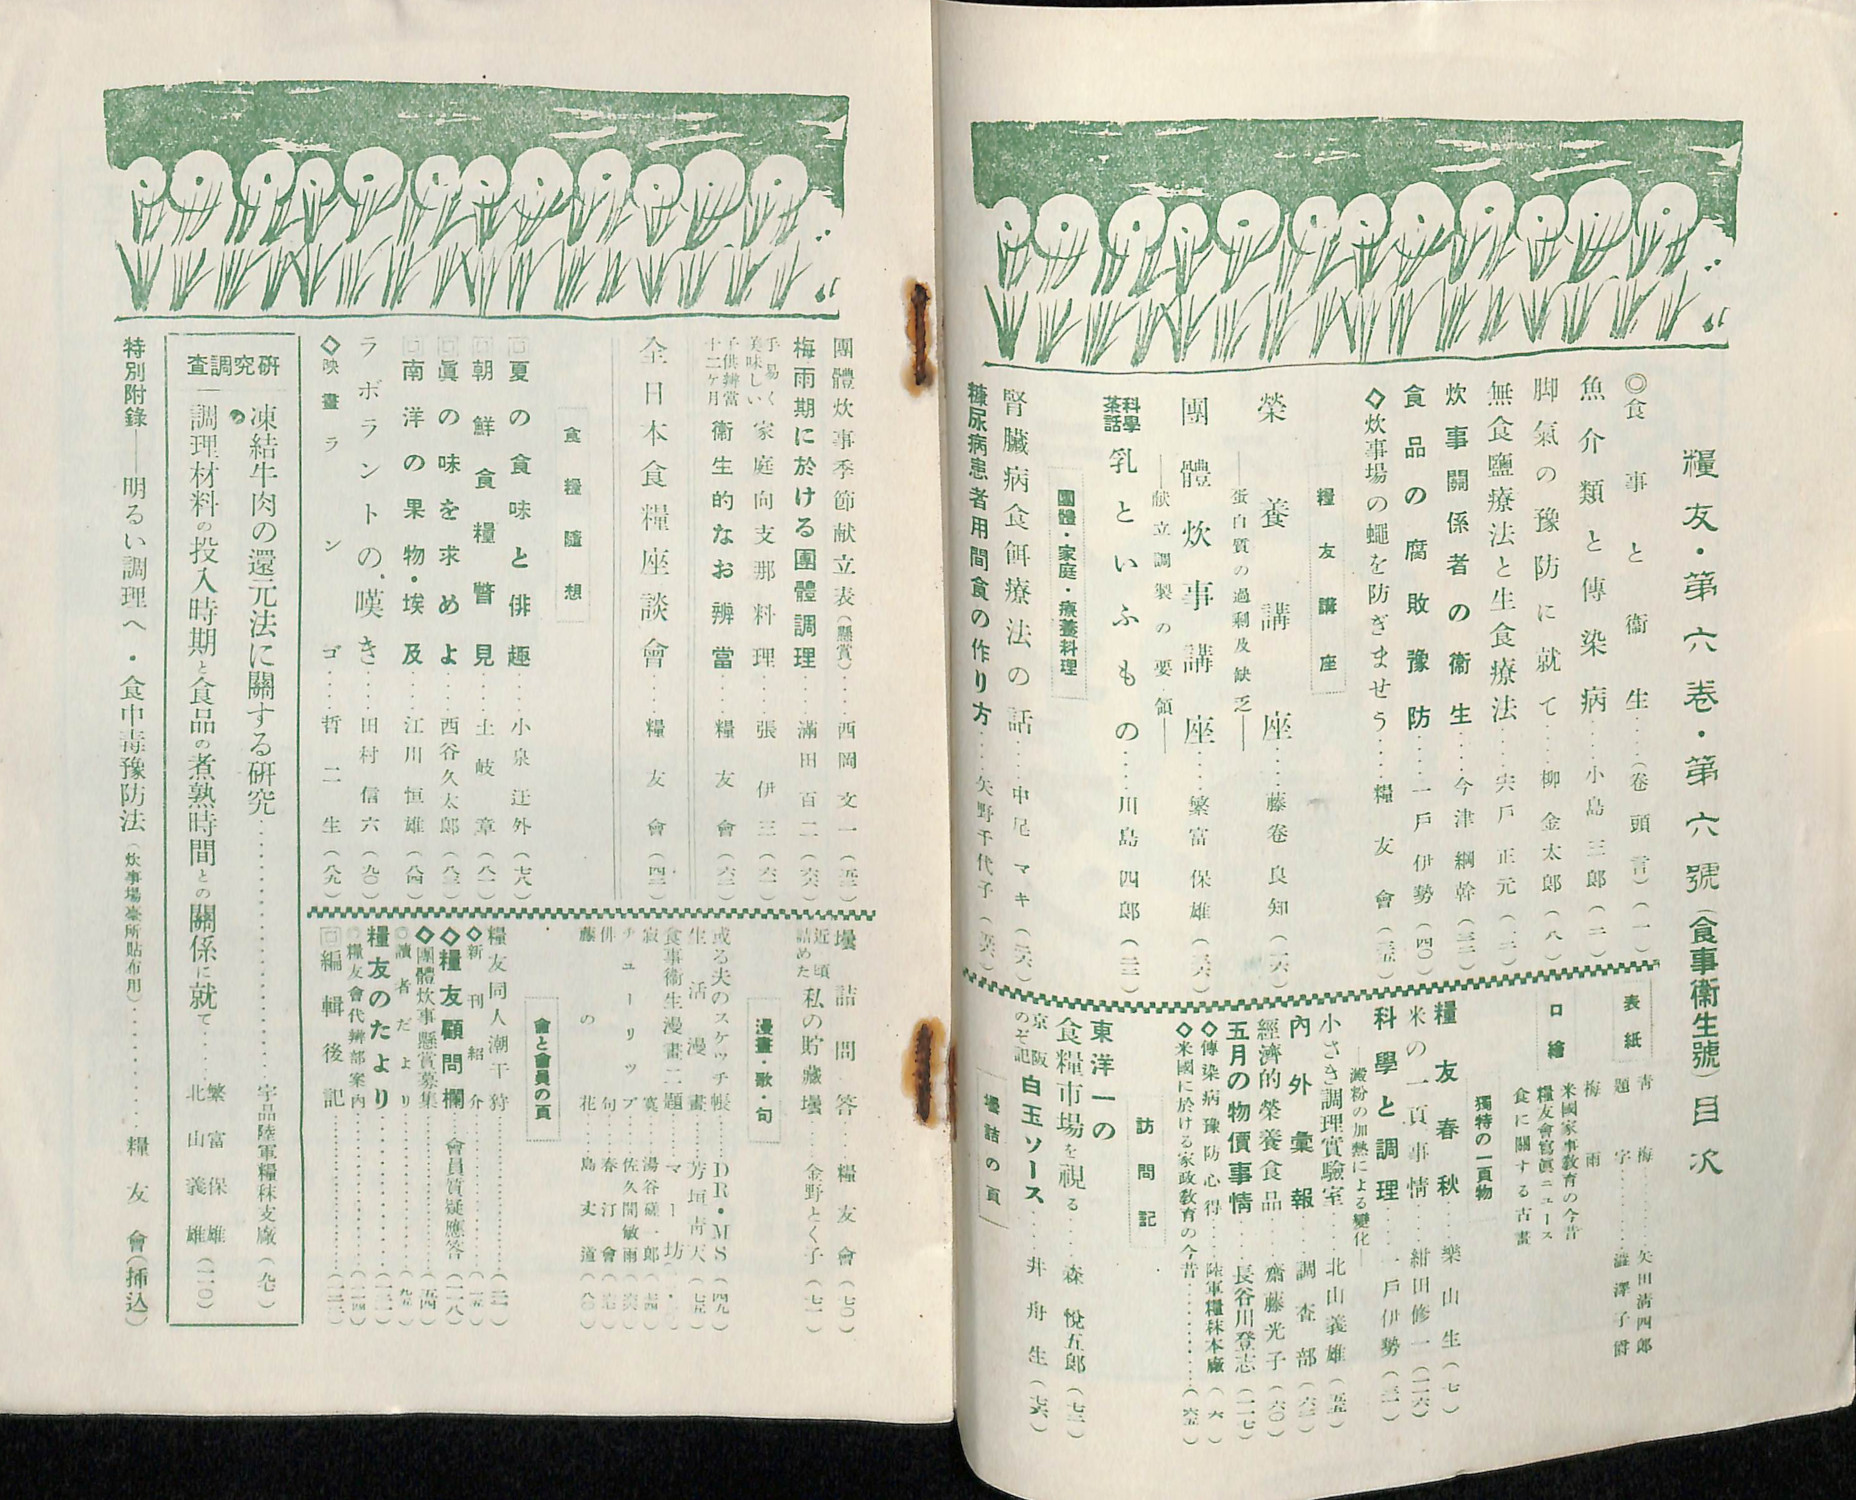 糧友・第六卷・第六號(食事衞生號)目次
◎食事と衞生……(卷頭言)(一)
魚介類と傳染病……小島三郎(二)
脚氣の豫防に就て……柳金太郎(八)
無食鹽療法と生食療法……宍戸正元
炊事關係者の衞生……今津綱幹(三二)
食品の腐敗豫防……一戸伊勢(四〇)
◇炊事場の蠅を防ぎませう……糧友會(三五)
糧友講座
榮養講座……藤卷良知(一六)
―蛋白質の過剩及缺乏―
團體炊事講座……繁富保雄(三六)
―献立調製の要領―
科學茶話 乳といふもの……川島四郎(三三)
團體・家庭・療養料理
腎臟病食餌療法の話……中尾マキ(三六)
糖尿病患者用間食の作り方……矢野千代子(五六)
表紙 青梅……矢田淸四郎
題字……澁澤子爵
口繪
梅雨
米國家事敎育の今昔
糧友會寫眞ニュース
食に關する古畫
獨特の一頁物
糧友春秋……樂山生(七)
米の一頁事情……紺田修一(二六)
科學と調理……一戸伊勢(三一)
―澱粉の加熱による變化―
小さき調理實驗室……北山義雄(五五)
內外彙報……調査部(六二)
經濟的榮養食品……齋藤光子(六〇)
五月の物價事情……長谷川登志(一一七)
◇傳染病豫防心得……陸軍糧秣本廠(六)
◇米國に於ける家政敎育の今昔……(六五)
訪問記
東洋一の食糧市場を視る……森悅五郎(七三)
京阪のぞ記 白玉ソース……井舟生(七六)
壜詰の頁
團體炊事季節献立表(懸賞)……西岡文一(五三)
梅雨期に於ける團體調理……滿田百二(六六)
手易く美味しい 家庭向支那料理……張伊三(六一)
子供辨當十二ケ月 衞生的なお辨當……糧友會(六三)
全日本食糧座談會……糧友會(四三)
食糧隨想
□夏の食味と俳趣……小泉迂外(七八)
□朝鮮食糧瞥見……土岐章(八一)
□眞の味を求めよ……西谷久太郎(八三)
□南洋の果物・埃及……江川恒雄(八四)
ラボラントの嘆き……田村信六(九〇)
◇映畫ランゴ……哲二生(八九)
壜詰問答……糧友會(七〇)
近頃詰めた 私の貯藏壜……金野とく子(七一)
漫畫・歌・句
或る夫のスケッチ帳……DR・MS(四九)
生活漫畫……芳垣靑天(七五)
食事衞生漫畫二題……マー坊
寂寞……湯谷磋一郎
チューリップ……佐久間敏雨
俳句……春汀會
藤の花……島丈道(八〇)
會と會員の頁
糧友同人潮干狩……
◇新刊紹介……
◇糧友顧問欄……會員質疑應答(一一八)
◇團體炊事懸賞募集……(五四)
□讀者だより……(九五)
糧友のたより……
□糧友會代辨部案內……
□編輯後記……
研究調査
凍結牛肉の還元法に關する研究……宇品陸軍糧秣支廠(九七)
調理材料の投入時期と食品の煮熟時間との關係に就て……繁富保雄 北山義雄(一一〇)
特別附錄――明るい調理へ・食中毒豫防法(炊事場臺所貼布用)……糧友會(挿込)